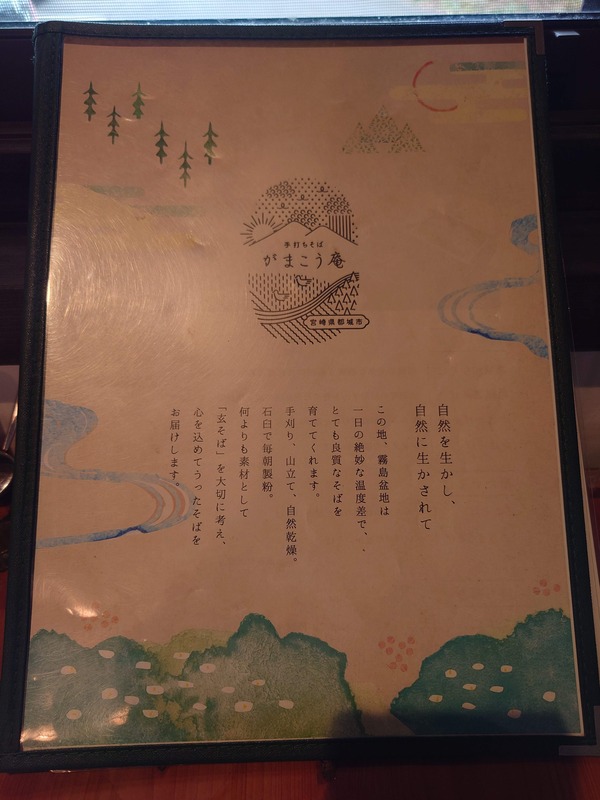 手打ちそば
がまこう庵
宮崎県都城市
自然を生かし、
自然に生かされて
この地、霧島盆地は
一日の絶妙な温度差で、
とても良質なそばを
育ててくれます。
手刈り、山立て、自然乾燥。
石臼で毎朝製粉。
何よりも素材として
「玄そば」を大切に考え、
心を込めてうったそばを
お届けします。